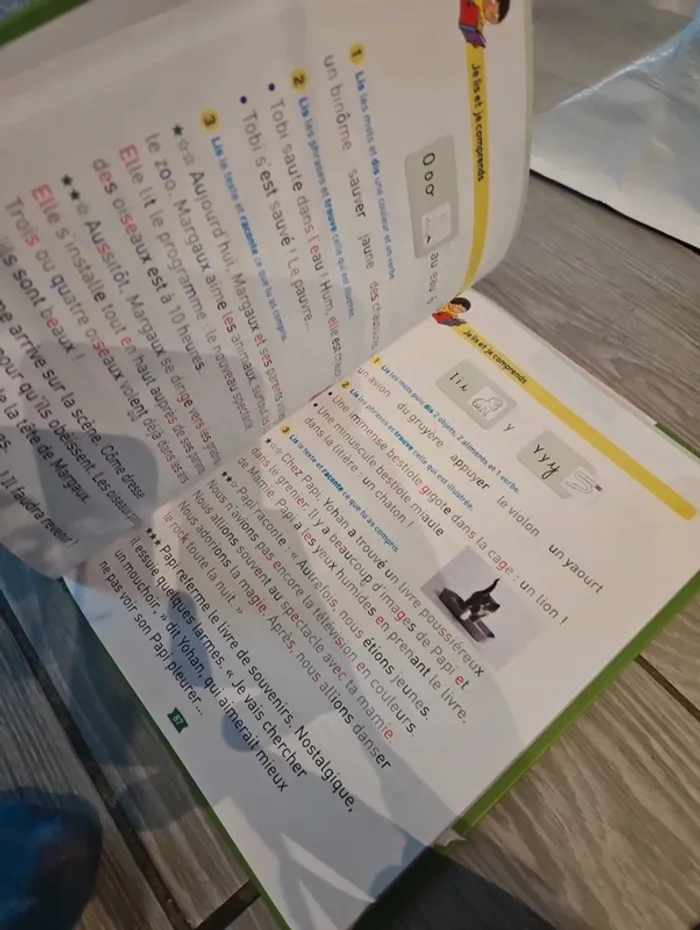 Je lis et je comprends
O o o
au eau
1 Lis les mots et dis une couleur et un verbe.
un binôme sauver jaune des
2 Lis les phrases et trouve celle qui est illustrée.
• Tobi saute dans l'eau ! Hum, elle est
• Tobi s'est sauvé ! Le pauvre...
3 Lis le texte et raconte ce que tu as compris.
★☆☆ Aujourd'hui, Margaux et ses parents
le zoo. Margaux aime les animaux, surtout les
Elle lit le programme : le nouveau spectacle
des oiseaux est à 10 heures.
★★☆ Aussitôt, Margaux se dirige vers les
Elle s'installe tout en haut auprès de ses parents
Trois ou quatre oiseaux volent déjà dans les
ils sont beaux !
arrive sur la scène. Côme dresse
pour qu'ils obéissent. Les oiseaux
la tête de Margaux.
Il faudra revenir !
Je lis et je comprends
I i i y Y y y
1 Lis les mots puis dis 2 objets, 2 aliments et 1 verbe.
un avion du gruyère appuyer le violon un yaourt
2 Lis les phrases et trouve celle qui est illustrée.
• Une immense bestiole gigote dans la cage : un lion !
• Une minuscule bestiole miaule
dans la litière : un chaton !
3 Lis le texte et raconte ce que tu as compris.
★☆☆ Chez Papi, Yohan a trouvé un livre poussiéreux
dans le grenier. Il y a beaucoup d'images de Papi et
de Mamie. Papi a les yeux humides en prenant le livre.
★★☆ Papi raconte : « Autrefois, nous étions jeunes.
Nous n'avions pas encore la télévision en couleurs.
Nous allions souvent au spectacle avec ta mamie.
Nous adorions la magie. Après, nous allions danser
le rock toute la nuit. »
★★★ Papi referme le livre de souvenirs. Nostalgique,
il essuie quelques larmes. « Je vais chercher
un mouchoir. » dit Yohan, qui aimerait mieux
ne pas voir son Papi pleurer...
87